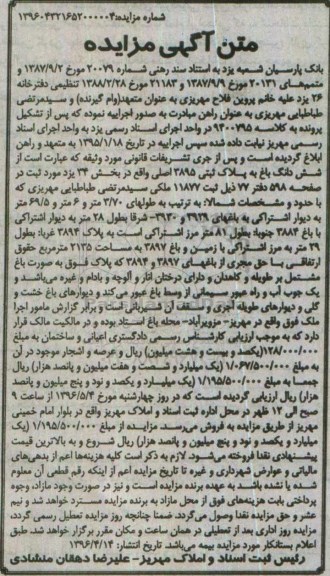 شماره مزایده:۱۳۹۶۰۴۳۲۱۶۵۲۰۰۰۰۰۴
متن آگهی مزایده
بانک پارسیان شعبه یزد به استناد سند رهنی شماره ۲۰۰۷۹ مورخ ۱۳۸۷/۹/۲ و
متمم‌های ۲۰۱۳۱ مورخ ۱۳۸۷/۹/۹ و ۲۱۱۸۳ مورخ ۱۳۸۸/۲/۲۸ تنظیمی دفترخانه
۲۶ یزد علیه خانم پروین فلاح مهریزی به عنوان متعهد(وام گیرنده) و سیدمرتضی
طباطبایی مهریزی به عنوان راهن مبادرت به صدور اجراییه نموده که پس از تشکیل
پرونده به کلاسه ۹۴۰۰۷۹۵ در واحد اجرای اسناد رسمی یزد به واحد اجرای اسناد
رسمی مهریز نیابت داده شده سپس اجراییه در تاریخ ۱۳۹۵/۱/۱۸ به متعهد و راهن
ابلاغ گردیده است و پس از جری تشریفات قانونی مورد وثیقه که عبارت است از
شش دانگ باغ به پلاک ثبتی ۳۸۹۵ اصلی واقع در بخش ۳۴ یزد مورد ثبت در
صفحه ۵۹۸ دفتر ۷۷ ذیل ثبت ۱۱۸۷۷ ملکی سیدمرتضی طباطبایی مهریزی که
با حدود و مشخصات شمالا: به ترتیب به طولهای ۳/۷۰ متر و ۶ متر و ۶۹/۵ متر
به دیوار اشتراکی به باغهای ۳۹۲۹ و ۳۹۳۰- شرقا بطول ۲۸ متر به دیوار اشتراکی
با باغ ۳۸۸۴ جنوبا: بطول ۸۱ متر مرز اشتراکی است به پلاک ۳۸۹۴ غربا: بطول
۲۹ متر به مرز اشتراکی با زمین و باغ ۳۸۹۷ به مساحت ۲۱۳۵ مترمربع حقوق
ارتفاقی با حق مجری از باغهای ۳۸۹۷ و ۳۸۹۴ که پلاک فوق به صورت باغ
مشتمل بر طویله و کاهدان و دارای درختان انار و آلوچه و بادام و غیره می‌باشد و
یک جوب آب و راه عبور سیمانی از وسط باغ عبور می‌کند و دیوارهای باغ خشت و
گلی و دیوارهای طویله آجری و سقف آن شیروانی است و برابر گزارش مامور اجرا
ملک فوق واقع در مهریز- مزویرآباد- محله باغ استاد بوده و در مالکیت مالک قرار
دارد که به موجب ارزیابی کارشناس رسمی دادگستری اعیانی و ساختمان به مبلغ
۱۲۸/۰۰۰/۰۰۰(یکصد و بیست و هشت میلیون) ریال و عرصه و اشجار موجود در آن
به مبلغ ۱/۰۶۷/۵۰۰/۰۰۰ (یک میلیارد و شصت و هفت میلیون و پانصد هزار) ریال
جمعا به مبلغ ۱/۱۹۵/۵۰۰/۰۰۰ (یک میلیارد و یکصد و نود و پنج میلیون و پانصد
هزار) ریال ارزیابی گردیده است که در روز چهارشنبه مورخ ۱۳۹۶/۵/۴ از ساعت ۹
صبح الی ۱۲ ظهر در محل اداره ثبت اسناد و املاک مهریز واقع در بلوار امام خمینی
مهریز از طریق مزایده به فروش می‌رسد. مزایده از مبلغ ۱/۱۹۵/۵۰۰/۰۰۰ (یک
میلیارد و یکصد و نود و پنج میلیون و پانصد هزار) ریال شروع و به بالاترین قیمت
پیشنهادی نقدا فروخته می‌شود. لازم به ذکر است کلیه هزینه‌ها اعم از بدهی‌های
مالیاتی و عوارض شهرداری و غیره تا تاریخ مزایده اعم از اینکه رقم قطعی آن معلوم
شده یا نشده باشد به عهده برنده مزایده است و نیز در صورت وجود مازاد، وجوه
پرداختی بابت هزینه‌های فوق از محل مازاد به برنده مزایده مسترد خواهد شد و نیم
عشر و حق مزایده نقدا وصول می‌گردد. ضمنا چنانچه روز مزایده تعطیل رسمی گردد،
مزایده روز اداری بعد از تعطیلی در همان ساعت و مکان مقرر برگزار خواهد شد. طبق
اعلام بستانکار مورد مزایده بیمه می‌باشد. تاریخ انتشار: ۱۳۹۶/۴/۱۴
رئیس ثبت اسناد و املاک مهریز- علیرضا دهقان منشادی